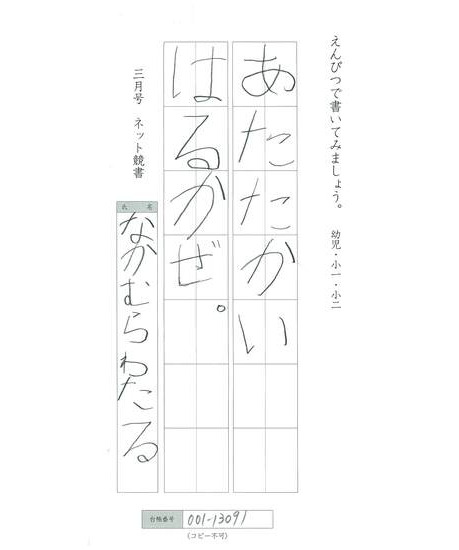 えんぴつで書いてみましょう。 幼児・小一・小二
あたたかい
はるかぜ。
三月号 ネット競書
氏名
なかむらわたる
台帳番号 001-13091
(コピー不可)